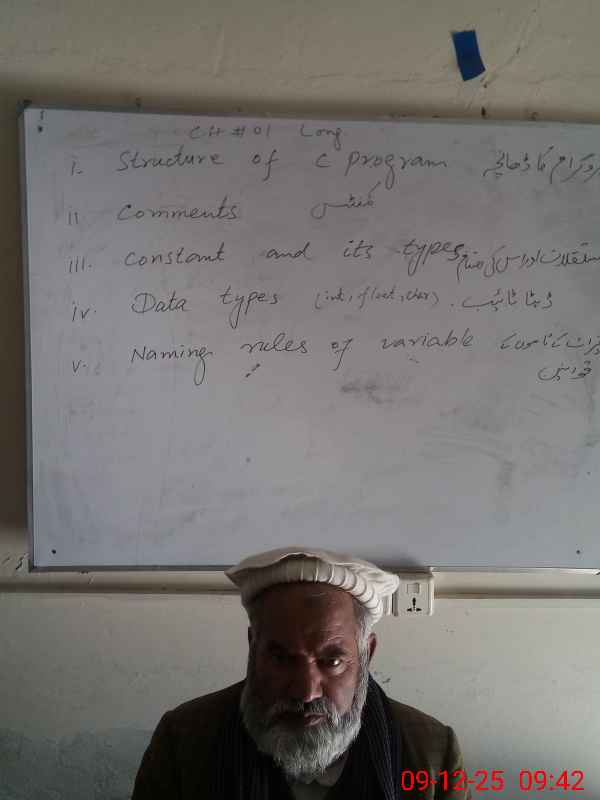 CH # 01 Long
i. Structure of C program پروگرام کا ڈھانچہ
ii Comments کمنٹس
iii. Constant and its types مستقلات اور اس کی اقسام
iv. Data types (int, float, char). ڈیٹا ٹائپ
v. Naming rules of variable کے ناموں کے
قوانین
09-12-25 09:42